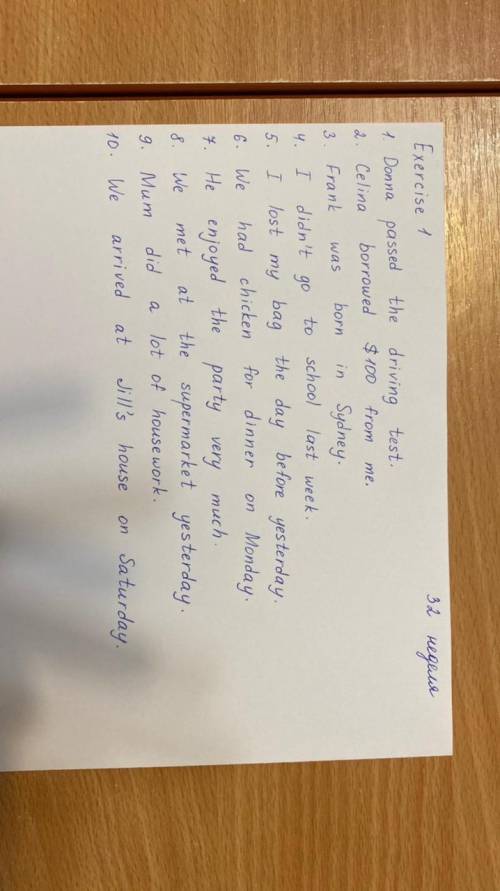 32 неделя
Exercise 1
1. Donna passed the driving test.
2. Celina borrowed $100 from me.
3. Frank was born in Sydney.
4. I didn't go to school last week.
5. I lost my bag the day before yesterday.
6. We had chicken for dinner on Monday.
7. He enjoyed the party very much.
8. We met at the supermarket yesterday.
9. Mum did a lot of housework.
10. We arrived at Jill's house on Saturday.